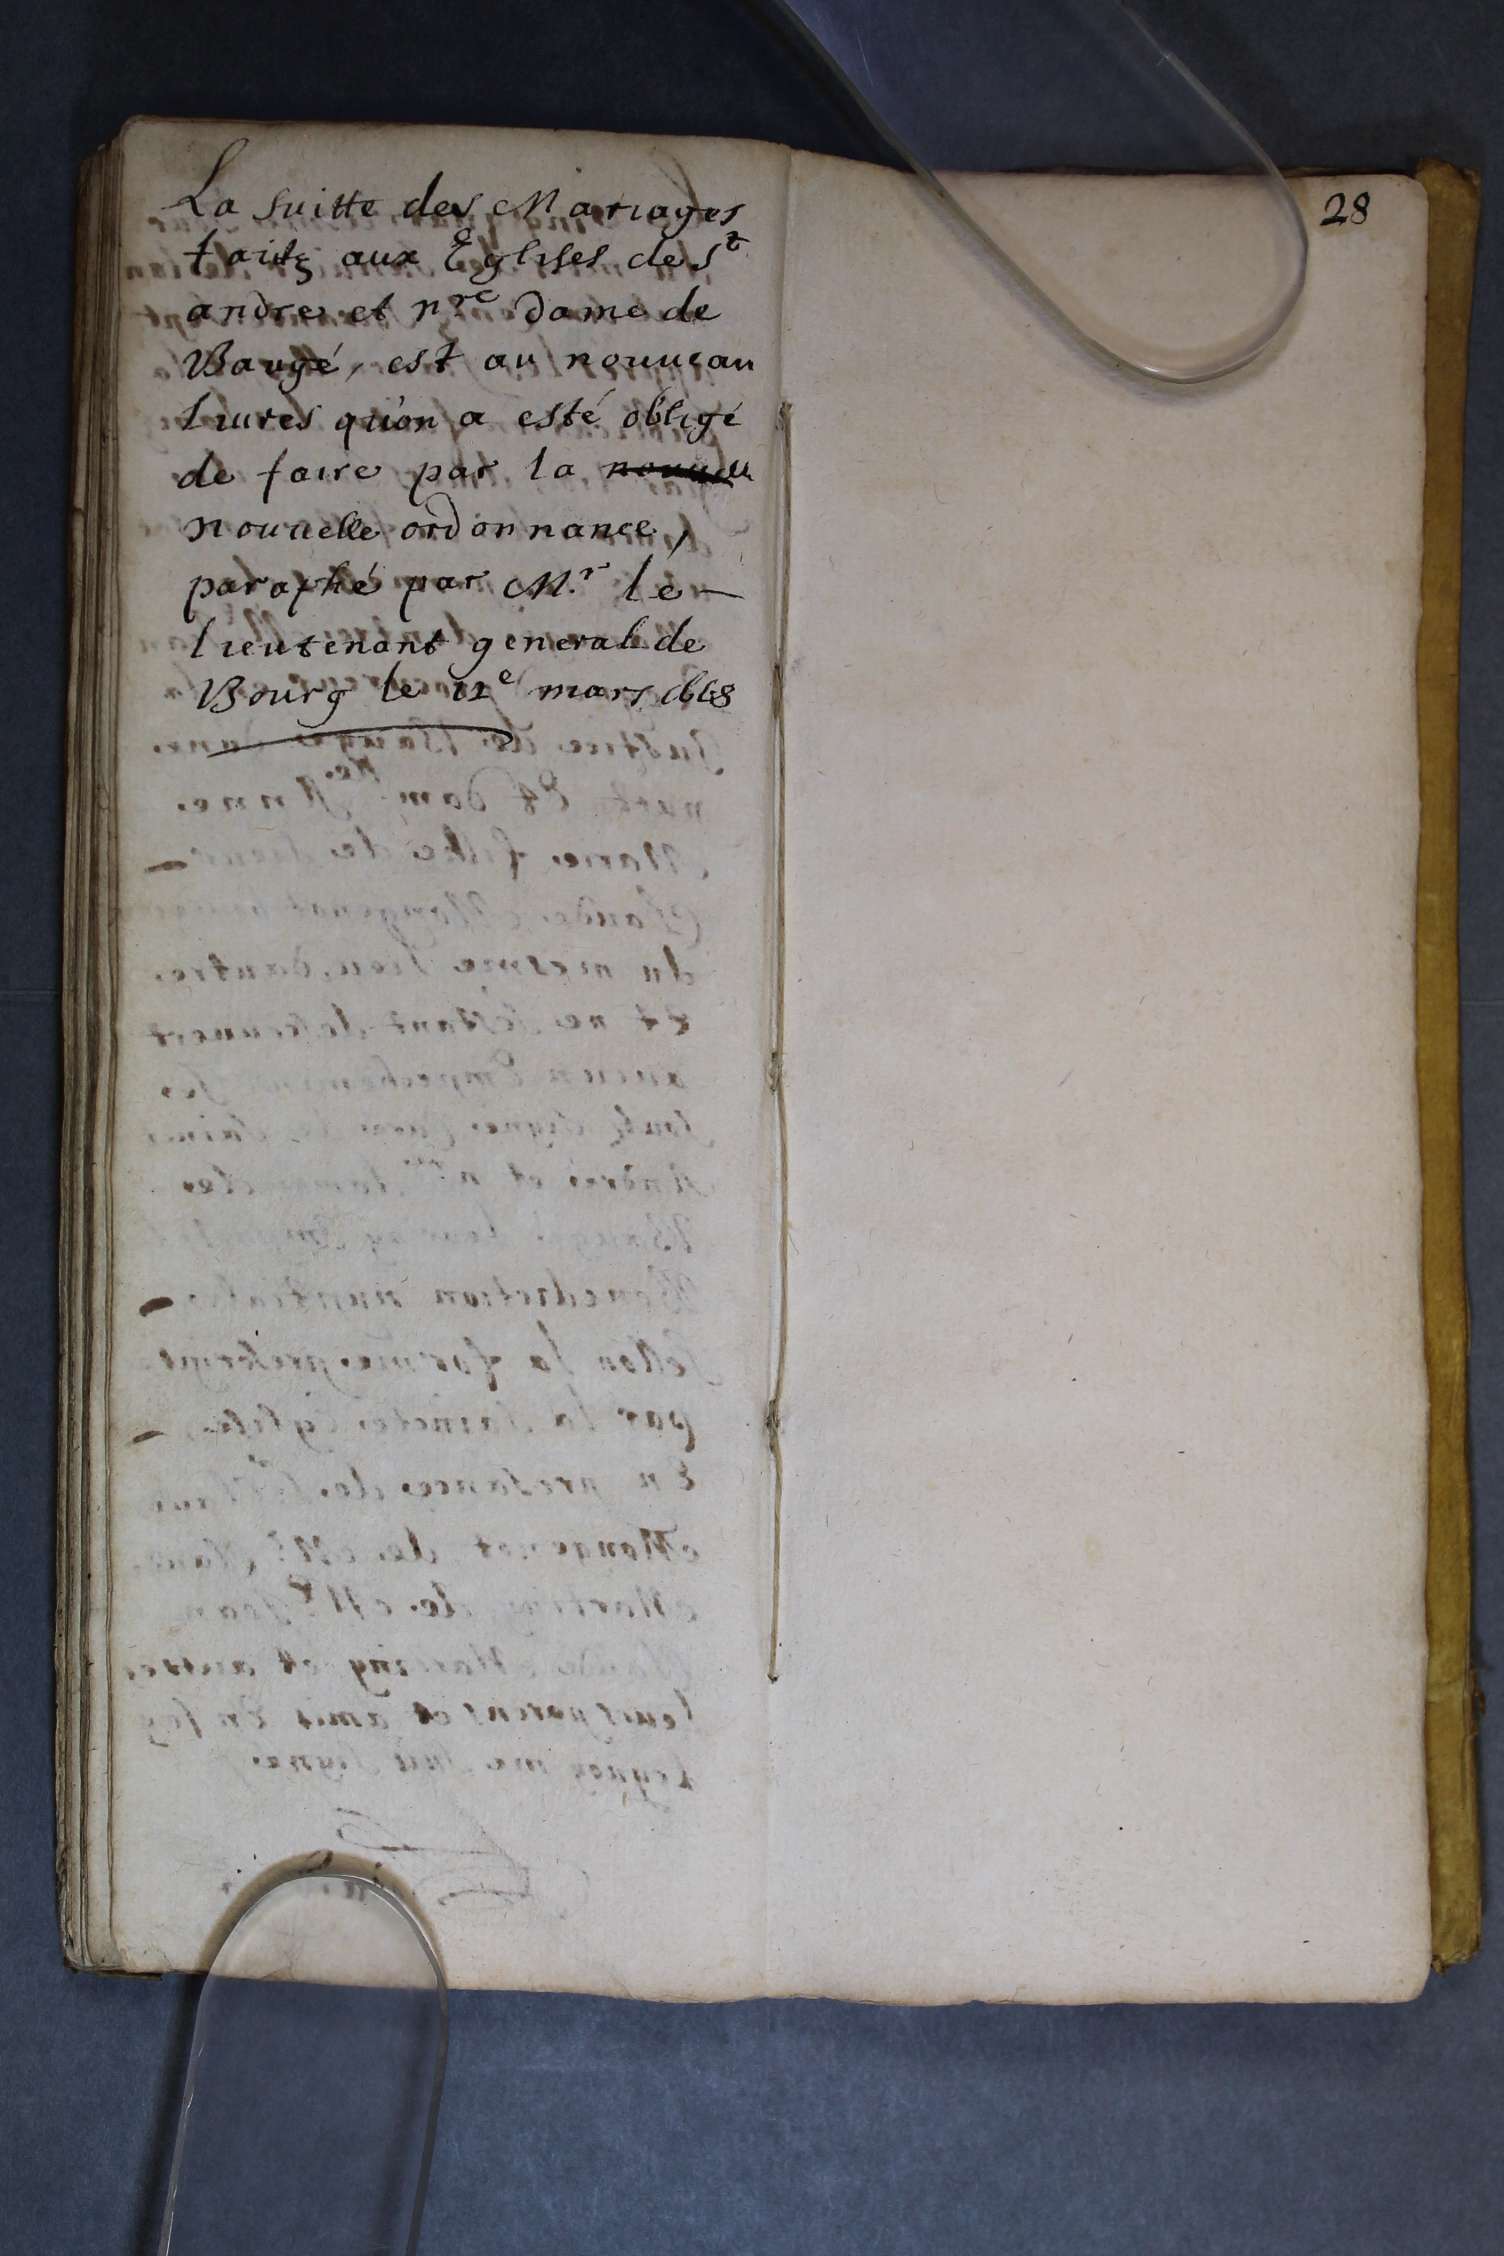 La suitte des Mariages
faitz aux Eglises de St
andre et nre dame de
Baugé, est au nouueau
liures qu'on a esté obligé
de faire par la nouueu
nouuelle ordonnance,
paraphé par Mr. le
lieutenant general de
Bourg le 11e mars 1668
28